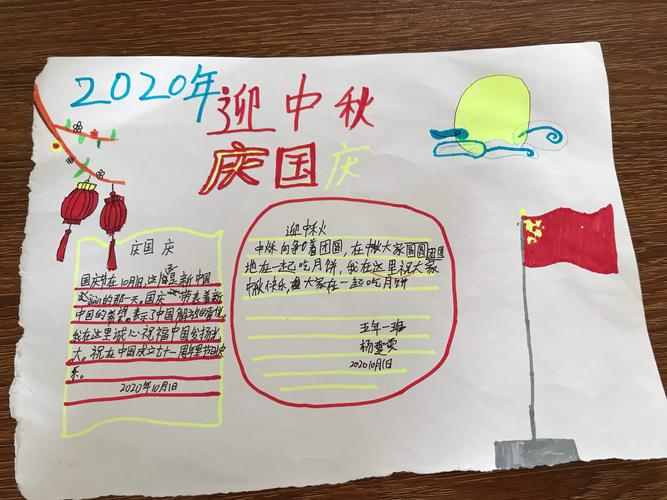 2020年
迎中秋
庆国庆
庆国庆
国庆节在10月1日这届是新中国
的那一天。国庆一带表着新
中国的希望。表示了中国解放的喜悦
我在这里诚心祝福中国发扬光
大。祝在中国成立七十一周年里节日快
乐。
2020年10月1日
迎中秋
中秋向争着团圆,在中秋大家团圆团圆
地在一起吃月饼,我在这里祝大家
中秋快乐,大家在一起吃月饼
五年一班
杨雯雯
2020年10月1日